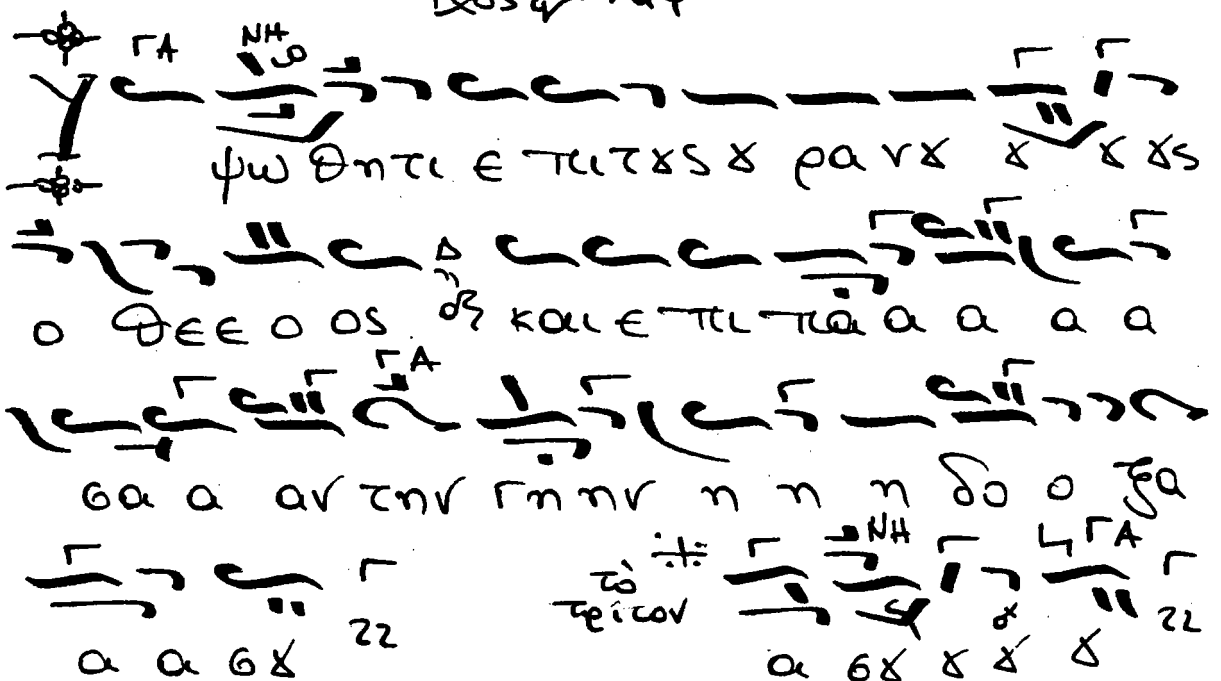 ΓΑ ΝΗ
Υ
ψω θητι ε πι τȣς ȣ ρα νȣ ȣ ȣ ȣς
Δ
ο θε ε ο ος και ε πι πα α α α α
ΓΑ
σα α αν την γη ην η η η δο ο ξα
τὸ τρίτον ΝΗ ΓΑ
α α σȣ α σȣ ȣ ȣ ȣ